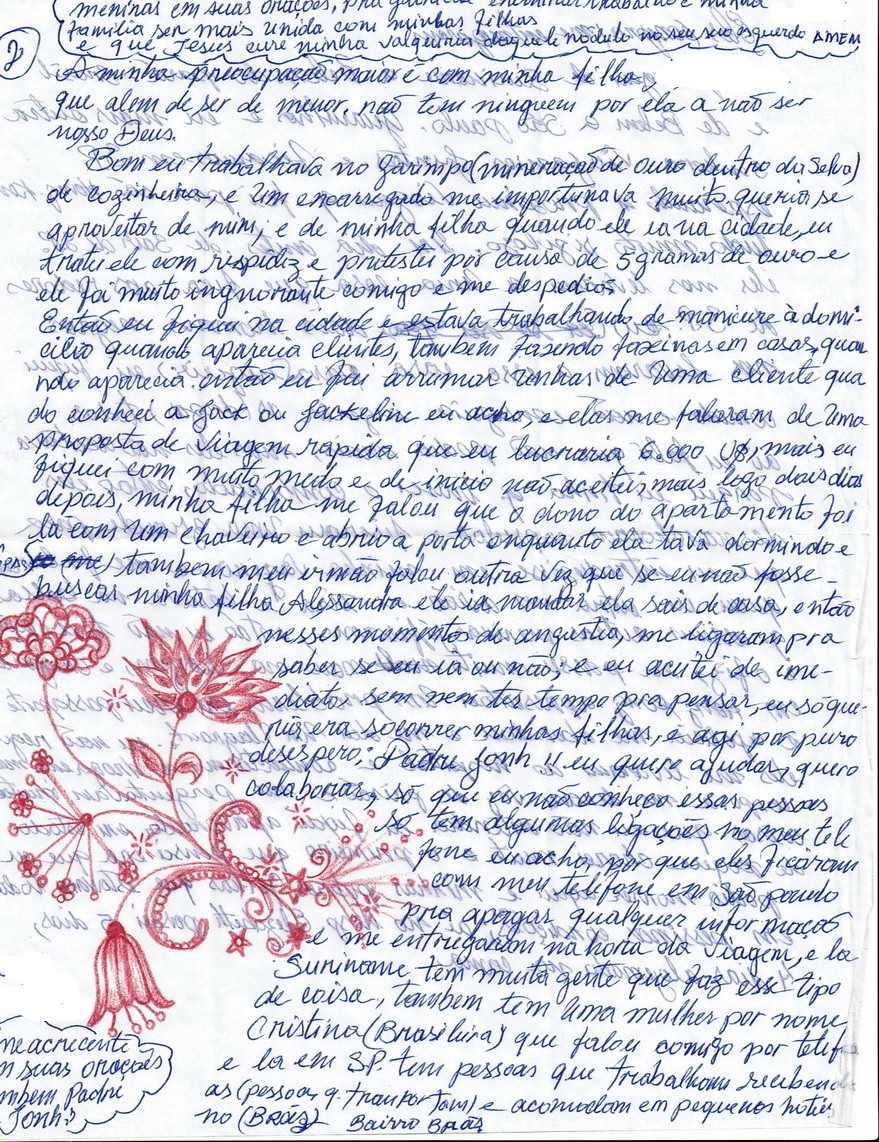 meninas em suas orações, pra
família ser mais unida com minhas filhas
e que Jesus cure minha Valquiria daquele nódulo no seu seio esquerdo AMEM
2)
A minha preocupação maior é com minha filha,
que alem de ser de menor, não tem ninguem por ela a não ser
nosso Deus.
Bom eu trabalhava no garimpo (mineração de ouro dentro da Selva)
de cozinheira, e um encarregado me importunava muito, queria se
aproveitar de mim, e de minha filha quando ele ia na cidade, eu
tratei ele com respidiz e protestei por causa de 5 gramas de ouro e
ele foi muito ingnorante comigo e me despediu
Então eu fiquei na cidade e estava trabalhando de manicure à domi-
cilio quando aparecia clientes, também fazendo faxinas em casas, quan
ndo aparecia. então eu fui arrumar unhas de uma cliente qua
do conheci a Jack ou Jackeline eu acho, e elas me falaram de uma
proposta de viagem rápida que eu lucraria 6.000 U$, mais eu
fiquei com muito medo e de inicio não aceitei, mais logo dois dias
depois, minha filha me falou que o dono do apartamento foi
lá com um chaveiro e abrio a porta enquanto ela tava dormindo e
também meu irmão falou outra vez que se eu não fosse
buscar minha filha Alessandra ele ia mandar ela sair de casa, então
nesses momentos de angústia, me ligaram pra
saber se eu ia ou não; e eu aceitei de ime-
diato, sem nem ter tempo pra pensar, eu só que-
ria era socorrer minhas filhas, e agi por puro
desespero; Padre Jonh !! eu quero ajudar, quero
colaborar, só que eu não conheço essas pessoas
só tem algumas ligações no meu tele
fone eu acho, por que eles ficaram
com meu telefone em São paulo
pra apagar qualquer informação
e me entregaram na hora da viagem, e la
Suriname tem muita gente que faz esse tipo
de coisa, também tem uma mulher por nome
Cristina (Brasileira) que falou comigo por telefo
e la em SP. tem pessoas que trabalham recebend
as (pessoas q. transportam) e acomodam em pequenos hoteis
no (BRÁS) Bairro BRÁS
me acrecente
m suas orações
mbem Padre
Jonh?